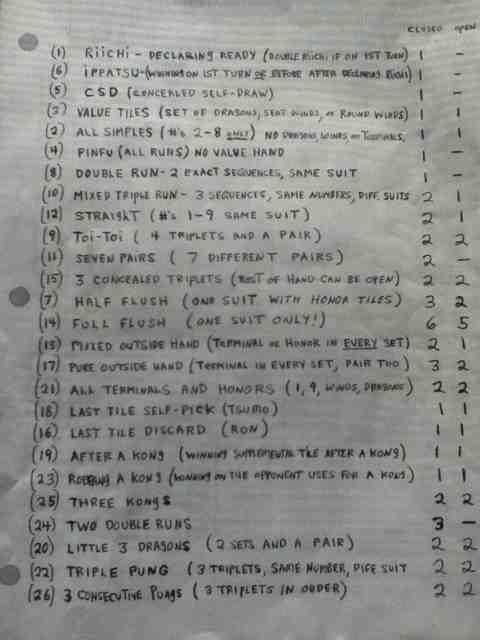 CLOSED OPEN
(1) RiiCHi - DECLARING READY (DOUBLE RiiCHi IF ON 1ST TURN) 1 -
(6) iPPATSU - (WINNING ON 1ST TURN OR BEFORE AFTER DECLARING RIICHI) 1 -
(5) CSD (CONCEALED SELF-DRAW) 1 -
(3) VALUE TILES (SET OF DRAGONS, SEAT WINDS, OR ROUND WINDS) 1 1
(2) ALL SIMPLES (#'s 2-8 ONLY) NO DRAGONS, WINDS, OR TERMINALS, 1 1
(4) PINFU (ALL RUNS) NO VALUE HAND 1 -
(8) DOUBLE RUN - 2 EXACT SEQUENCES, SAME SUIT 1 -
(10) MIXED TRIPLE RUN - 3 SEQUENCES, SAME NUMBERS, DIFF. SUITS 2 1
(12) STRAIGHT (#'s 1-9 SAME SUIT) 2 1
(9) TOi-TOi ( 4 TRIPLETS AND A PAIR ) 2 2
(11) SEVEN PAIRS ( 7 DIFFERENT PAIRS ) 2 -
(15) 3 CONCEALED TRIPLETS (REST OF HAND CAN BE OPEN) 2 2
(7) HALF FLUSH (ONE SUIT WITH HONOR TILES) 3 2
(14) FULL FLUSH (ONE SUIT ONLY!) 6 5
(13) MIXED OUTSIDE HAND (TERMINAL OR HONOR IN EVERY SET) 2 1
(17) PURE OUTSIDE HAND (TERMINAL IN EVERY SET, PAIR TOO) 3 2
(21) ALL TERMINALS AND HONORS (1, 9, WINDS, DRAGONS) 2 2
(18) LAST TILE SELF-PICK (TSUMO) 1 1
(16) LAST TILE DISCARD (RON) 1 1
(19) AFTER A KONG (WINNING SUPPLEMENTAL TILE AFTER A KONG) 1 1
(23) ROBBING A KONG (WINNING ON TILE OPPONENT USES FOR A KONG) 1 1
(25) THREE KONGS 2 2
(24) TWO DOUBLE RUNS 3 -
(20) LITTLE 3 DRAGONS (2 SETS AND A PAIR) 2 2
(22) TRIPLE PUNG (3 TRIPLETS, SAME NUMBER, DIFF SUIT 2 2
(26) 3 CONSECUTIVE PUNGS ( 3 TRIPLETS IN ORDER) 2 2